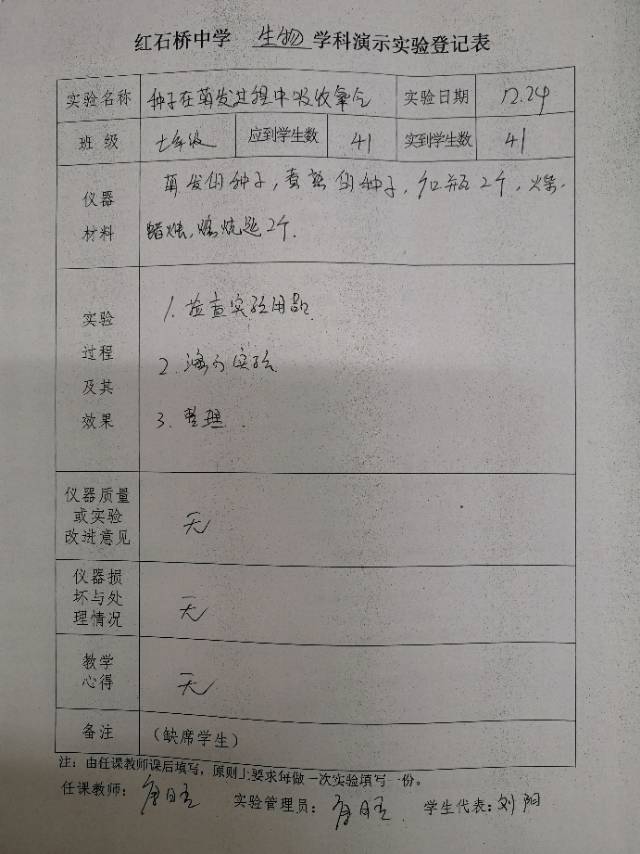 红石桥中学 生物 学科演示实验登记表
实验名称 种子在萌发过程中吸收氧气 实验日期 12.24
班级 七年级 应到学生数 41 实到学生数 41
仪器材料 萌发的种子,煮熟的种子,广口瓶2个,火柴,
蜡烛,燃烧匙2个.
实验过程及其效果
1. 检查实验用品
2. 演示实验
3. 整理.
仪器质量或实验改进意见 无
仪器损坏与处理情况 无
教学心得 无
备注 (缺席学生)
注:由任课教师课后填写,原则上要求每做一次实验填写一份。
任课教师: 实验管理员: 学生代表:刘阳